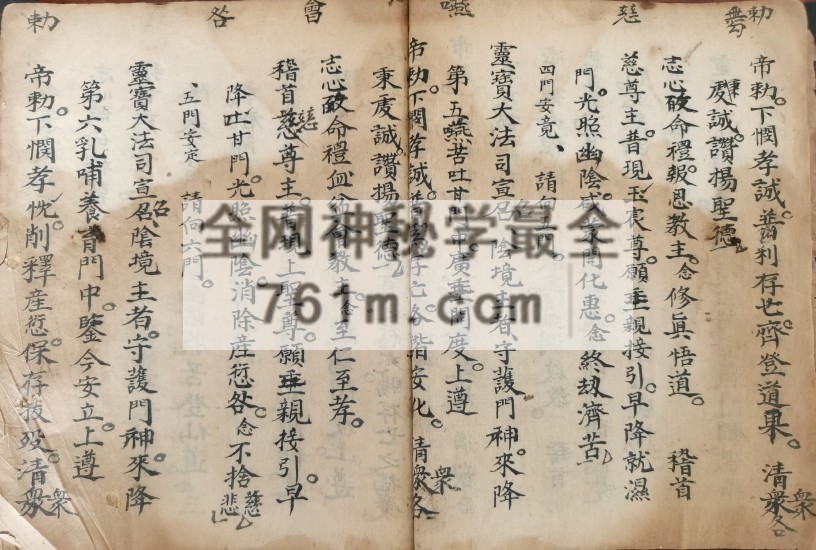 勅
帝勅。下憫孝誠。普利存亡。齊登道果。清衆各
虔誠。讚揚聖德
志心皈命禮。報恩教主。念修真悟道。 稽首
慈尊主。普現玉宸尊。願垂親接引。早降就濕
門。光照幽陰 開化惠。念終劫濟苦
四門安竟、 請向五門。
靈寶大法司宣召陰境主者。守護門神。來降
第五嚥苦吐甘門中。廣垂開度。上尊
帝勅。下憫孝誠。普 存亡。各 安化。清衆各
秉虔誠。讚揚聖德
志心皈命禮。血盆會教主。念至仁至孝。
稽首慈尊主。普現上聖尊。願垂親接引。早
降吐甘門。光照幽陰。消除產愆咎。念不捨慈悲
五門安定 請向六門。
靈寶大法司宣召陰境主者。守護門神。來降
第六乳哺養育門中。鑒今安立。上遵
帝勅。下憫孝忱。削釋產愆。保存拔歿。清衆
慈
嚥
會
咎
勅
全网神秘学最全
761m.com